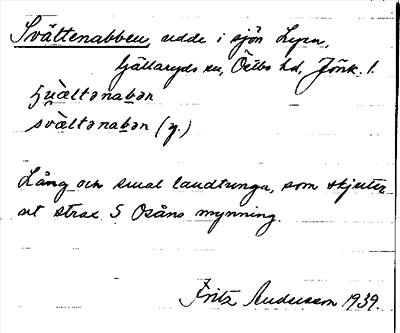 Svättenabben, udde i sjön Lyen,
Hjälmaryds sn, Östbo hd, Jönk. l.
svàltənabən
svàltənabən (y.)
Lång och smal landtunga, som skjuter
ut strax S Osåns mynning.
Fritz Andersson 1939.